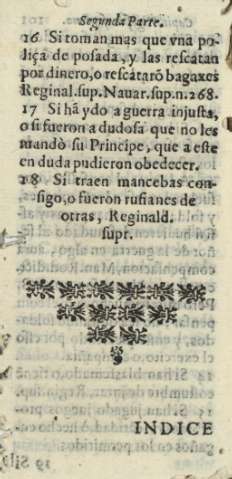 Segunda Parte.
16 Si toman mas que vna po-
liça de posada, y las rescatan
por dinero, o rescatarõ bagaxes
Reginal. sup. Nauar. sup. n. 268.
17 Si hã ydo a guerra injusta,
o si fueron a dudosa que no les
mandò su Principe, que a este
en duda pudieron obedecer.
18 Si traen mancebas con-
sigo, o fueron rufianes de
otras, Reginald.
supr.
INDICE